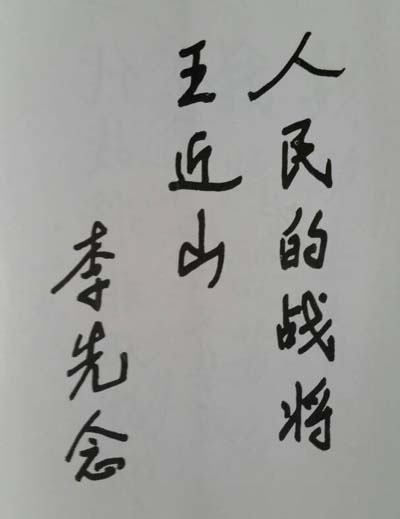 人民的战将
王近山
李先念